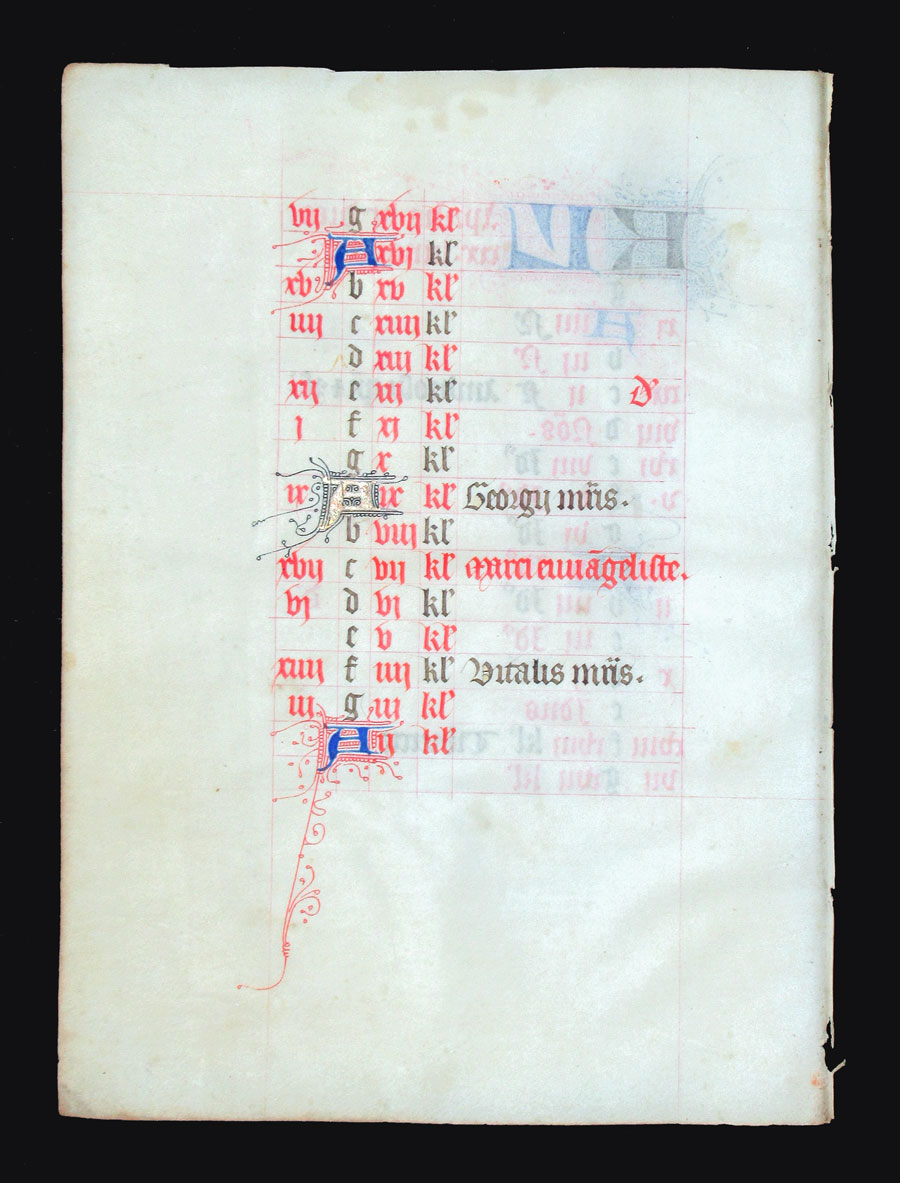 vij g xvij kl'
A xvj kl'
xv b xv kl'
iiij c xiiij kl'
d xiij kl'
xij e xij kl' D
j f xj kl'
g x kl'
ix A ix kl' Georgij mr̄is.
b viij kl'
xvij c vij kl' Marci euuāgeliste.
vj d vj kl'
e v kl'
xiiij f iiij kl' Vitalis mr̄is.
iij g iij kl'
A ij kl'